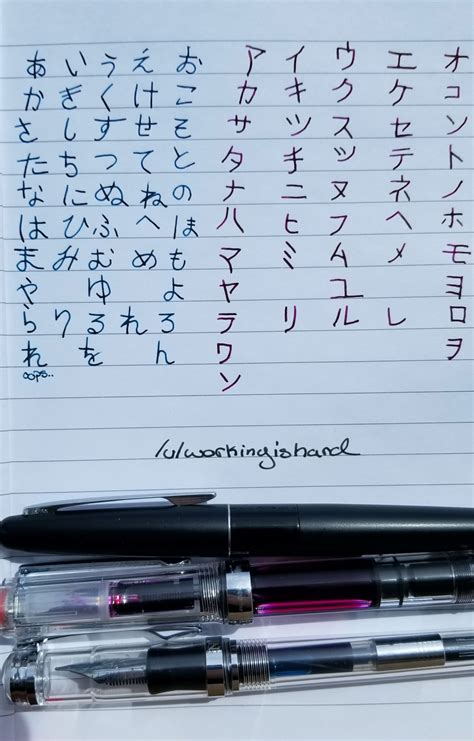 あ い う え お ア イ ウ エ オ
か き く け こ カ キ ク ケ コ
さ し す せ そ サ シ ス セ ソ
た ち つ て と タ チ ツ テ ト
な に ぬ ね の ナ ニ ヌ ネ ノ
は ひ ふ へ ほ ハ ヒ フ ヘ ホ
ま み む め も マ ミ ム メ モ
や ゆ よ ヤ ユ ヨ
ら り る れ ろ ラ リ ル レ ロ
れ を ん ワ ヲ
oops.. ン
/u/workingishard